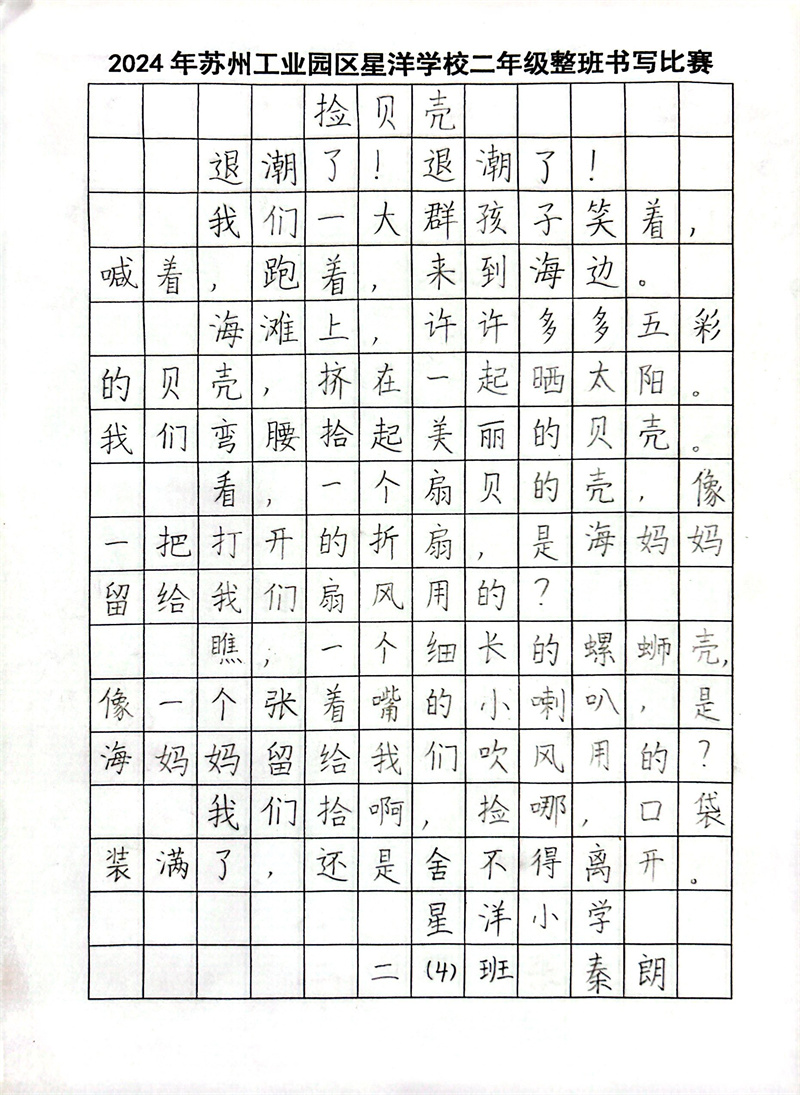 2024年苏州工业园区星洋学校二年级整班书写比赛
捡贝壳
退潮了！退潮了！
我们一大群孩子笑着，
喊着，跑着，来到海边。
海滩上，许许多多五彩
的贝壳，挤在一起晒太阳。
我们弯腰拾起美丽的贝壳。
看，一个扇贝的壳，像
一把打开的折扇，是海妈妈
留给我们扇风用的？
瞧，一个细长的螺蛳壳，
像一个张着嘴的小喇叭，是
海妈妈留给我们吹风用的？
我们拾啊，捡哪，口袋
装满了，还是舍不得离开。
星洋小学
二(4)班 秦朗